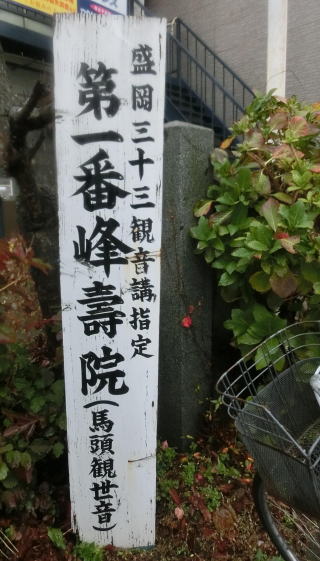 盛岡三十三観音講指定
第一番峰壽院(馬頭観世音)